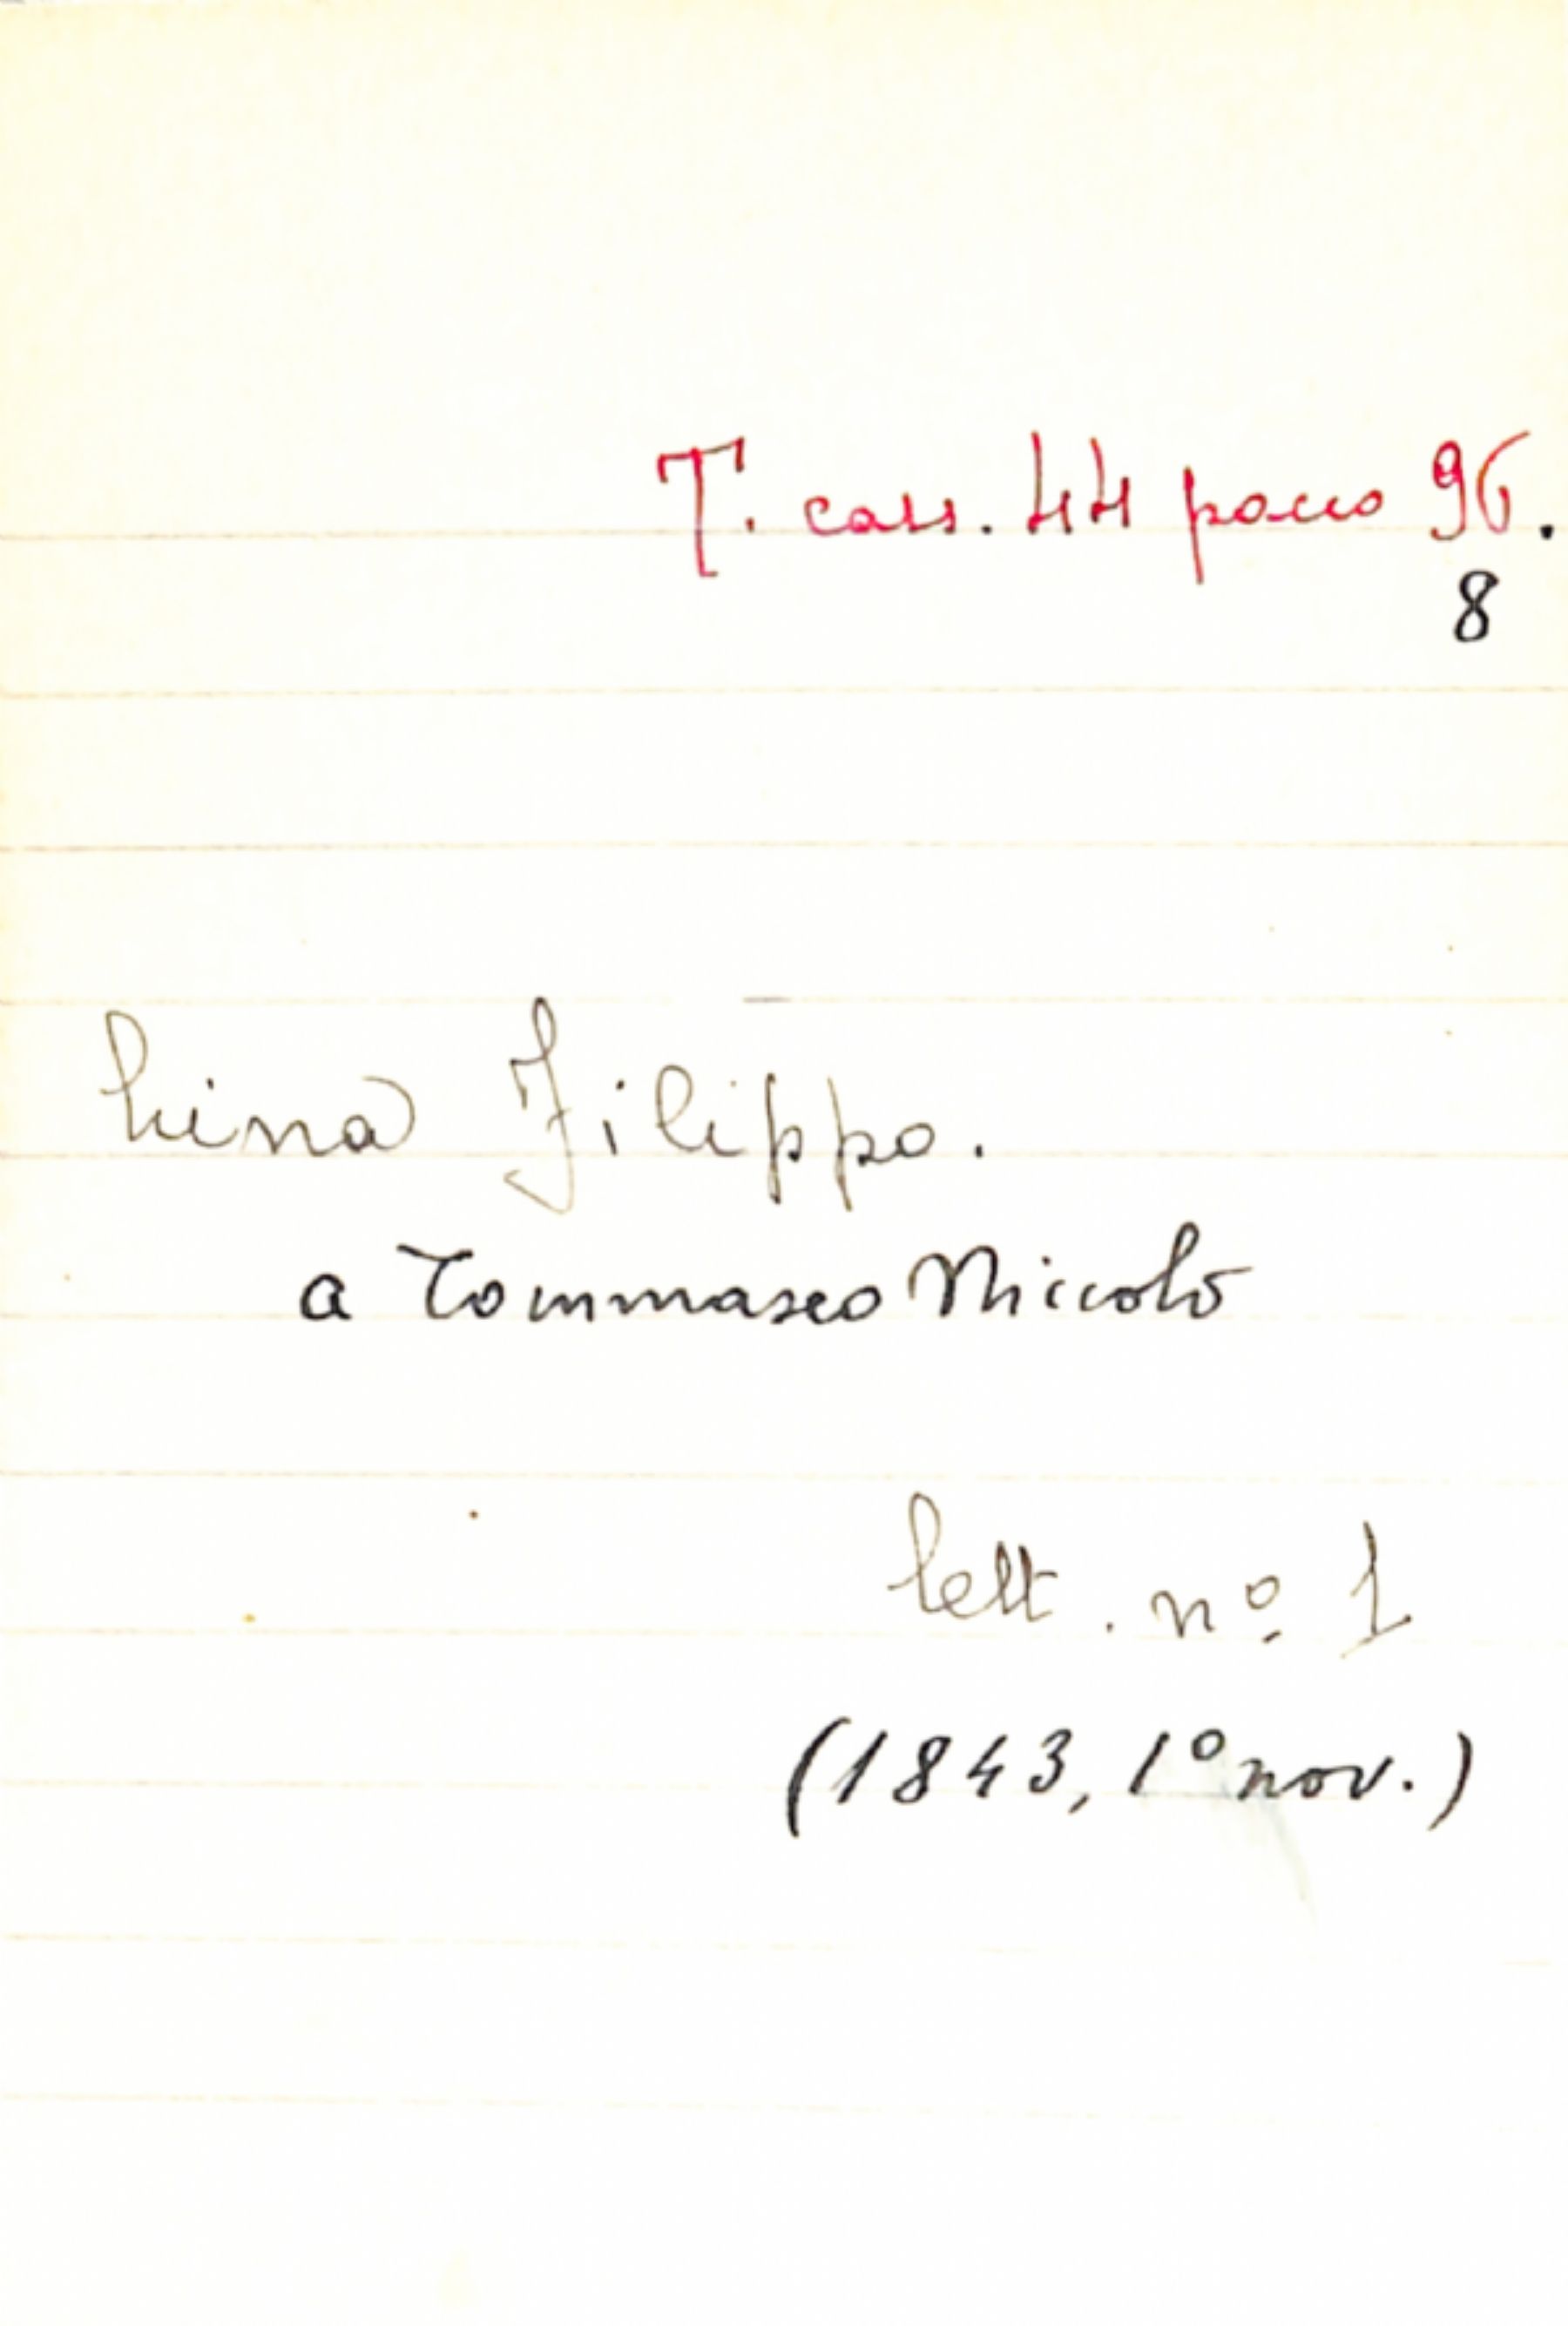 T. cass. 44 pacco 96.
8
Lina Filippo.
a Tommaseo Niccolò
lett. nº 1
(1843, 1º nov.)